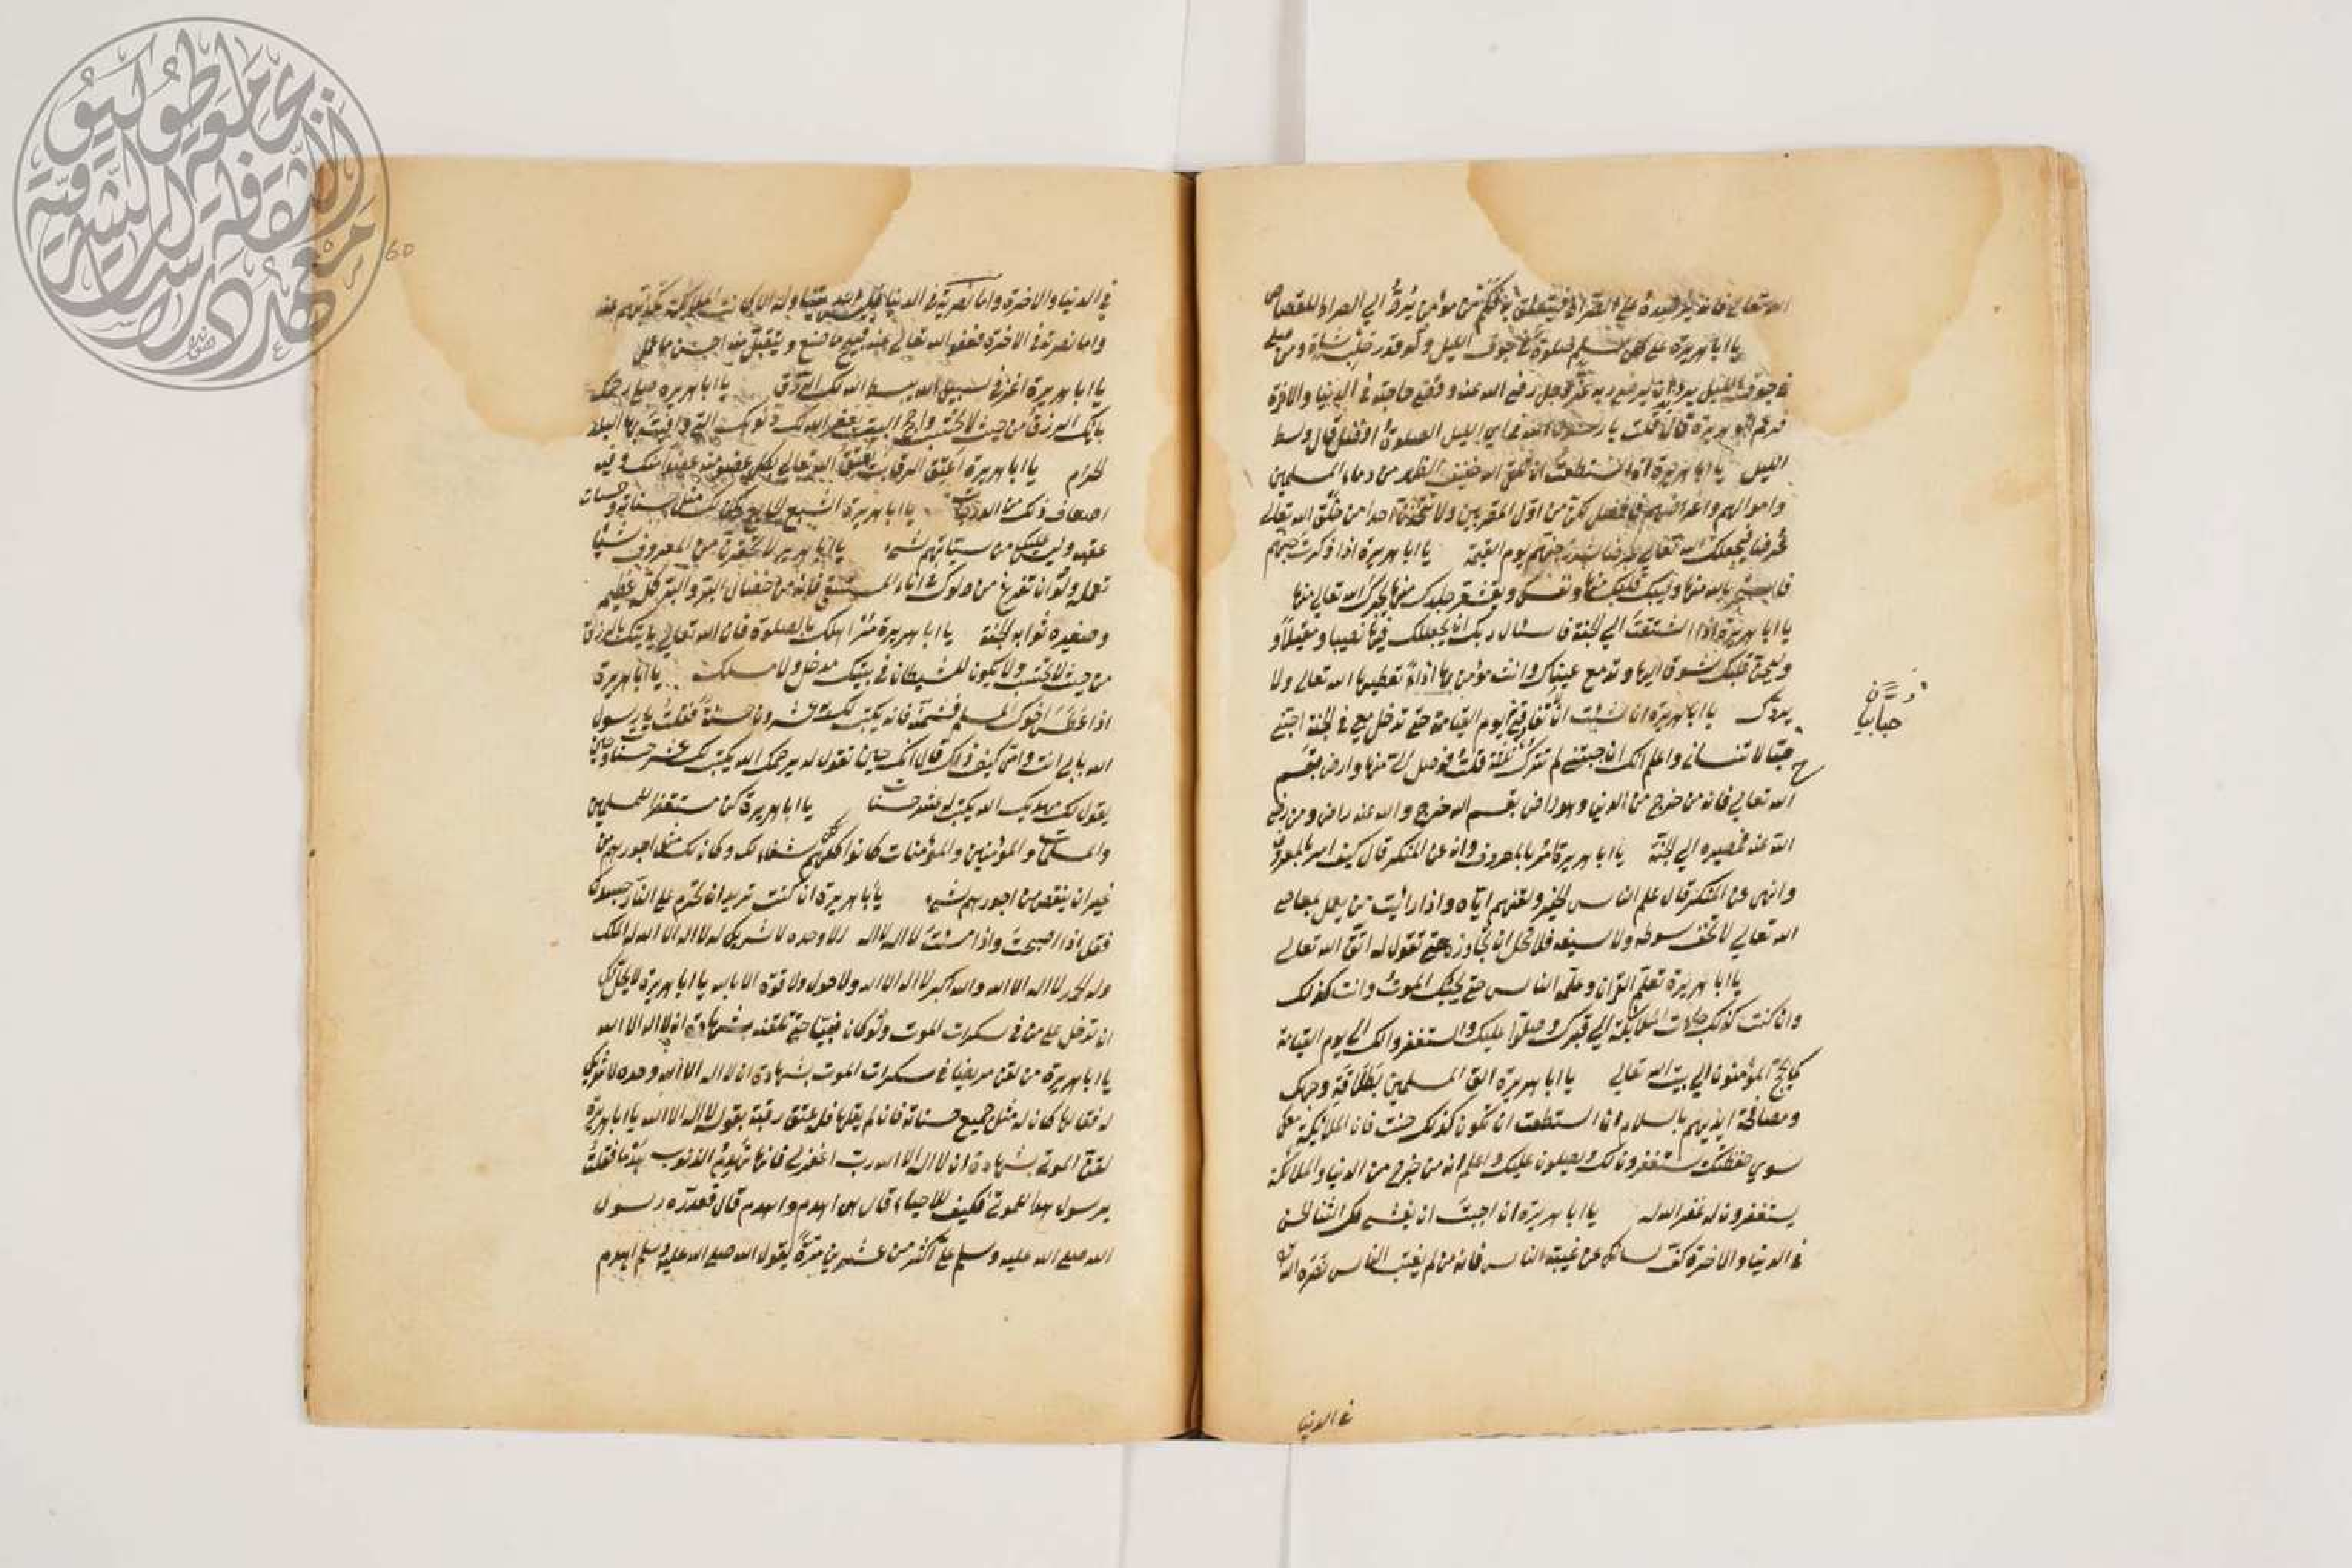 يا ابا هريرة على كل مسلم صلوة في جوف الليل ولو قدر حلب شاة ومن صلى
في جوف الليل يريد ان يرضى ربه عز وجل رضي الله عنه وقضى حاجته في الدنيا والاخرة
ابو هريرة قال قلت يا رسول الله في اي الليل الصلوة افضل قال وسط
الليل يا ابا هريرة ان استطعت ان تلقى الله خفيف الظهر من دماء المسلمين
واموالهم واعراضهم فافعل تكن من اول المقربين ولا تتخذن احدا من خلق الله تعالى
غرضا فيجعلك الله تعالى غرضا لشرر جهنم يوم القيمة يا ابا هريرة اذا ذكرت جهنم
فاستجر بالله منها وليبك قلبك منها ونفسك ويقشعر جلدك منها يجرك الله تعالى منها
يا ابا هريرة واذا اشتقت الى الجنة فاسئال ربك ان يجعل لك فيها نصيبا ومقيلا و
ليحن قلبك شوقا اليها وتدمع عيناك وانت مؤمن بها اذا يعطيها الله تعالى ولا
يردك يا ابا هريرة ان شئت ان لا تفارقني يوم القيامة حتى تدخل معي في الجنة احبني
حبا لا تنساني واعلم انك ان احببتني لم تترك ثلثة قلت فوصل الي منها وارض بقسم
الله تعالى فانه من خرج من الدنيا وهو راض بقسم الله خرج والله عنه راض ومن رضي
الله عنه فمصيره الى الجنة يا ابا هريرة تامر بالمعروف وانه عن المنكر قال كيف امر بالمعروف
وانهى عن المنكر قال علم الناس الخير ولقنهم اياه واذا رايت من يعمل بمعاصي
الله تعالى لا تخف سوطه ولا سيفه فلا يحل ان تجاوزه حتى تقول له اتق الله تعالى
يا ابا هريرة تعلم القران وعلمه الناس حتى يجيئك الموت وانت كذلك
وان كنت كذلك جاءت الملائكة الى قبرك وصلوا عليك واستغفروا لك الى يوم القيامة
كما يحج المؤمنون الى بيت الله تعالى يا ابا هريرة الق المسلمين بطلاقة وجهك
ومصافحة ايديهم بالسلام ان استطعت ان تكون كذلك حيث كنت فان الملائكة معك
سوى حفظتك يستغفرون لك ويصلون عليك واعلم انه من خرج من الدنيا والملائكة
يستغفرون له غفر الله له يا ابا هريرة ان احببت ان يفشى لك الثناء الحسن
في الدنيا والاخرة كف لسانك عن غيبة الناس فانه من لم يغتب الناس نصره الله
في الدنيا
في الدنيا والاخرة واما نصرته في الدنيا
واما نصرته في الاخرة فعفو الله تعالى عنه قبيح ما صنع ويتقبل منه احسن ما عمل
يا ابا هريرة اغز في سبيل الله يبسط الله لك الرزق يا ابا هريرة صل رحمك
ياتك الرزق من حيث لا تحتسب واحج البيت يغفر الله لك ذنوبك التي وافيت بها البلد
الحرام يا ابا هريرة اعتق الرقاب يعتق الله تعالى بكل عضو منه عضوا منك وفيه
اضعاف ذلك من الدرجات يا ابا هريرة اشبع الجايع يكن لك مثل حسناته وحسنات
عقبه وليس عليك من سيئاتهم شيء يا ابا هريرة لا تحقرن من المعروف شيئا
تعمله ولو ان تفرغ من دلوك في اناء المستقي فانه من خصال البر والبر كله عظيم
وصغيره ثوابه الجنة يا ابا هريرة مر اهلك بالصلوة فان الله تعالى ياتيك بالرزق
من حيث لا تحتسب ولا يكون للشيطان في بيتك مدخل ولا مسلك يا ابا هريرة
اذا عطس اخوك المسلم فشمته فانه يكتب لك عشرون حسنة فقلت يا رسول
الله بابي انت وامي كيف ذاك قال انك حين تقول له يرحمك الله يكتب لك عشر حسنات وحين
يقول لك يهديك الله يكتب لك عشر حسنات يا ابا هريرة كن مستغفرا للمسلمين
والمسلمات والمؤمنين والمؤمنات كانوا كلهم شفعاء لك وكان لك مثل اجورهم من
غير ان ينقص من اجورهم شيء يا ابا هريرة ان كنت تريد ان تحرم على النار جسدك
فقل اذا اصبحت واذا امسيت لا اله الا الله وحده لا شريك له لا اله الا الله له الملك
وله الحمد لا اله الا الله والله اكبر لا اله الا الله ولا حول ولا قوة الا بالله يا ابا هريرة لا يحل لك
ان تدخل على من في سكرات الموت ولو كان نبيا حتى تلقنه شهادة ان لا اله الا الله
يا ابا هريرة من لقن مريضا في سكرات الموت بشهادة ان لا اله الا الله وحده لا شريك
له فقالها كان له مثل جميع حسناته فان لم يقلها فله عتق رقبة بقوله لا اله الا الله يا ابا هريرة
لقن الموتى بشهادة ان لا اله الا الله رب اغفر لي فانها تهدم الذنوب هدما فقلت
يرسول هذا للموتى فكيف للاحياء قال هي اهدم واهدم قال فعدده رسول
الله صلى الله عليه وسلم على اكثر من عشرين مرة يقول الله صلى الله عليه وسلم اهدم
60